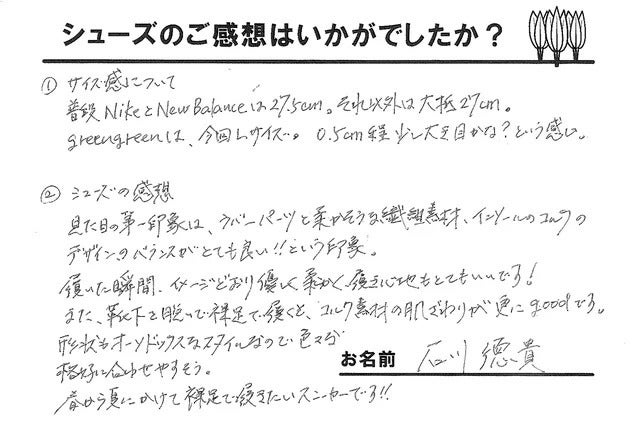 シューズのご感想はいかがでしたか？
① サイズ感について
普段NikeとNewBalanceは27.5cm。それ以外は大抵27cm。
greengreenは、今回Lサイズ。0.5cm程少し大き目かな？という感じ。
② シューズの感想
見た目の第一印象は、ラバーパーツと柔かそうな繊維素材、インソールのコルクの
デザインのバランスがとても良い!!という印象。
履いた瞬間、イメージどおり優しく柔かく、履き心地もとてもいいです!
また、靴下を脱いで裸足で履くと、コルク素材の肌ざわりが更にgoodです。
形状もオーソドックスなスタイルなので色々な
格好に合わせやすそう。
春から夏にかけて裸足で履きたいスニーカーです!!
お名前 石川 徳貴